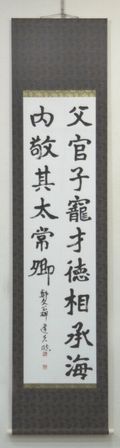 父官子寵才徳相承海
内敬其太常卿